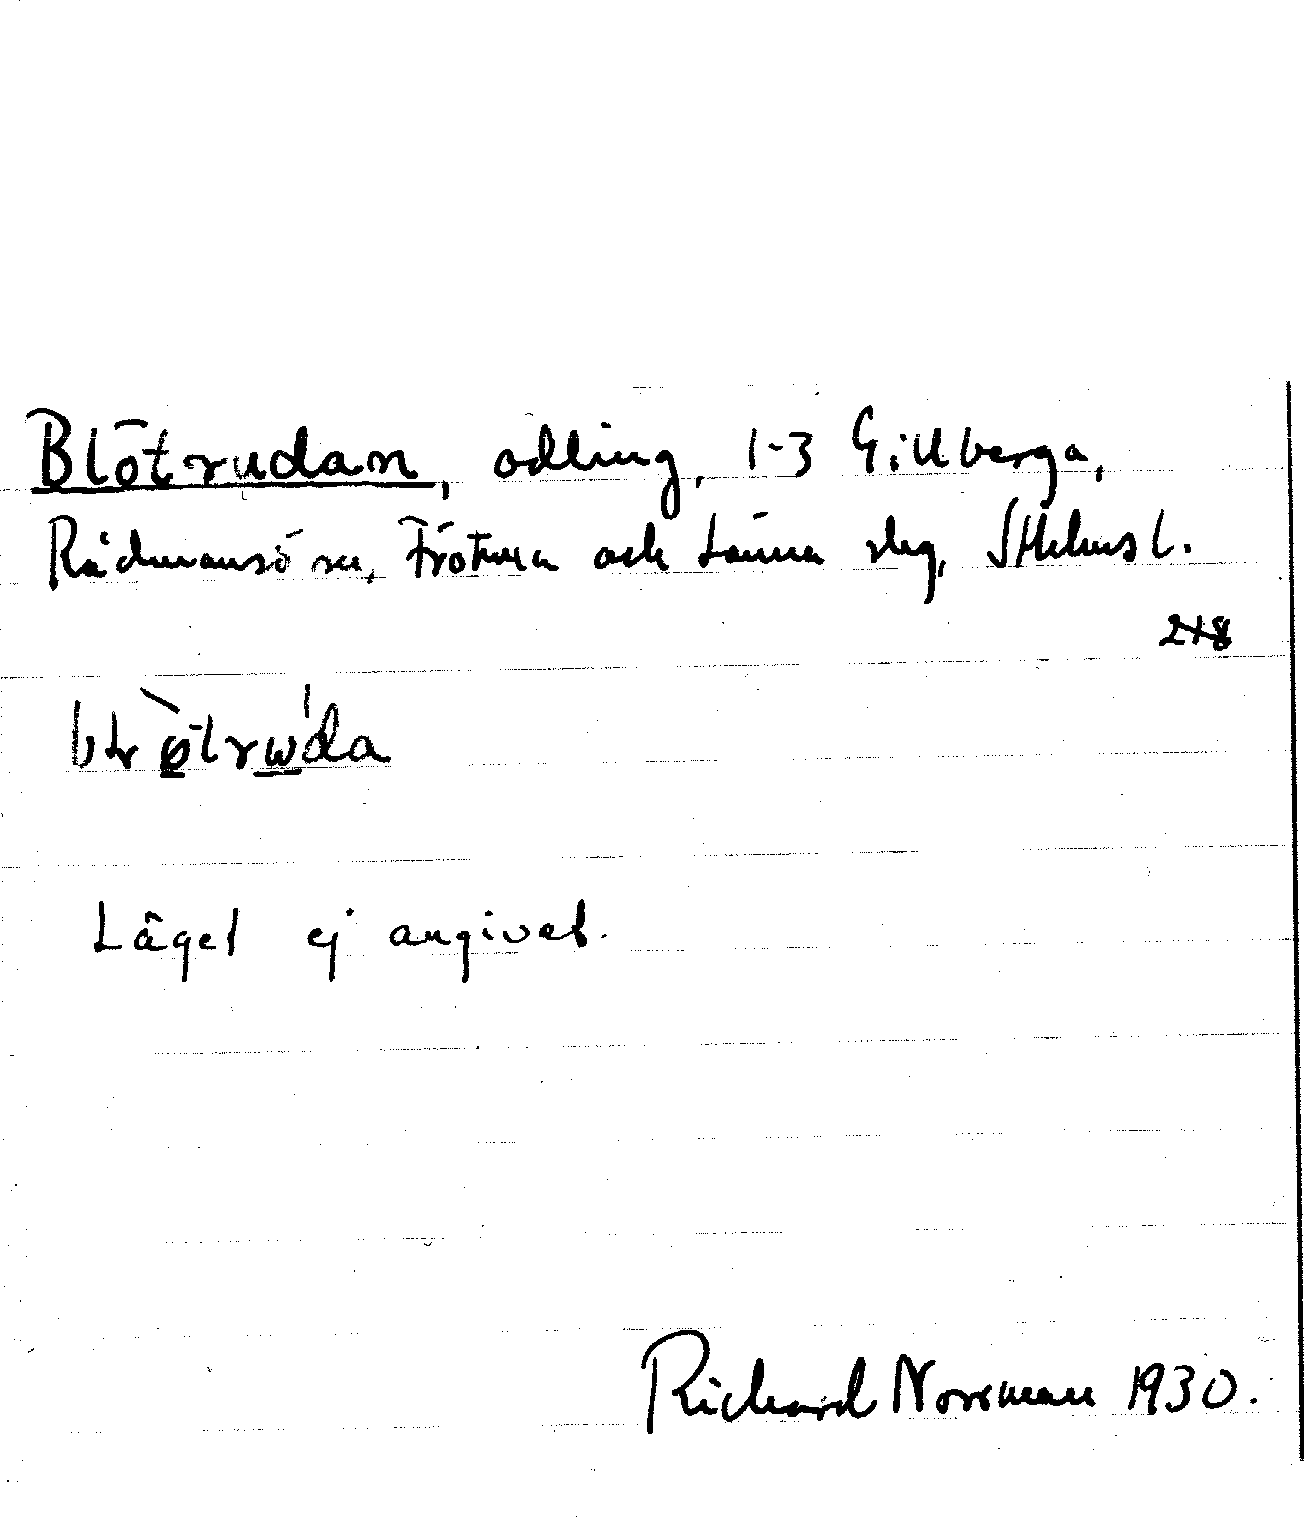 Blötrudan, odling, 1-3 Gillberga,
Rådmansö sn, Frötuna och Länna slg, Sthlms l.
248
Läget ej angivet.
Richard Norrman 1930.